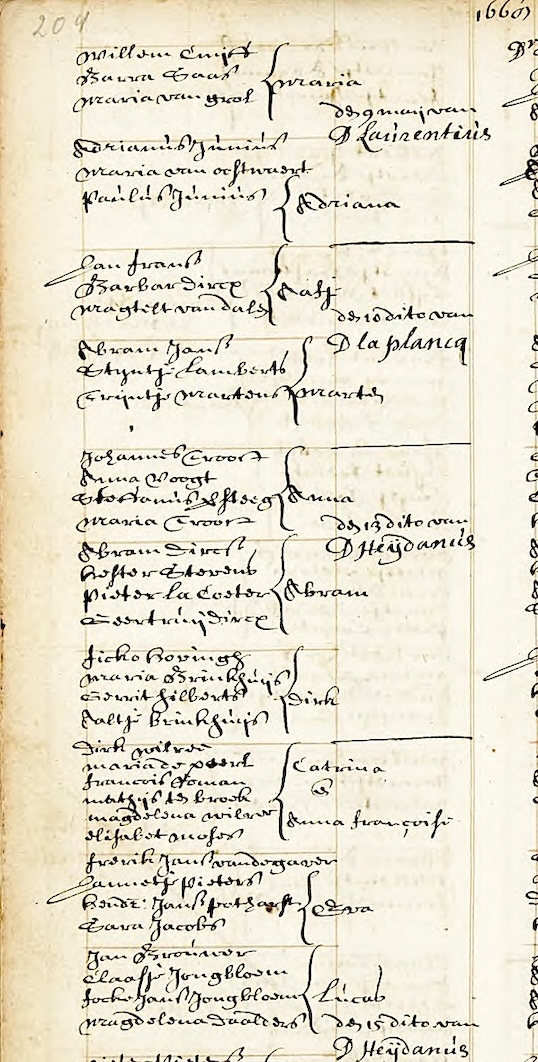 204
166
Willem
Barra Baas
Maria van grol
Maria
den 9 maij van
D Laurentius
Adrianus Junius
Maria van
Paulus Junius
Adriana
Jan frans
Barbar dircx
Magtelt van dalen
Aaltj
den 10 dito van
D la plancq
Abram Jans
Styntje Lamberts
Trijntje Martens
Marten
Johannes Croost
Anna Voogt
Steffanus
Maria Croost
Anna
den 13 dito van
D Heÿdanus
Abram Dircs
Hester Stevens
Pieter la Coeter
Geertruij dircx
Abram
Ficko Hovingh
Maria Brinkhuijs
Gerrit Hilberts
Aaltje brinkhuijs
Dirk
Dirk wilree
Maria de
francois Roman
Mathijs ten broek
Magdelena wilree
Elisabet Moses
Catrina
&
Anna françoise
frerik Jans
Jannetje Pieters
Hendr: Jans
Sara Jacobs
Eva
Jan Brouwer
Claasje Jongbloem
Focke Jans Jongbloem
Magdelena daalders
Lucas
den 15 dito van
D Heÿdanus